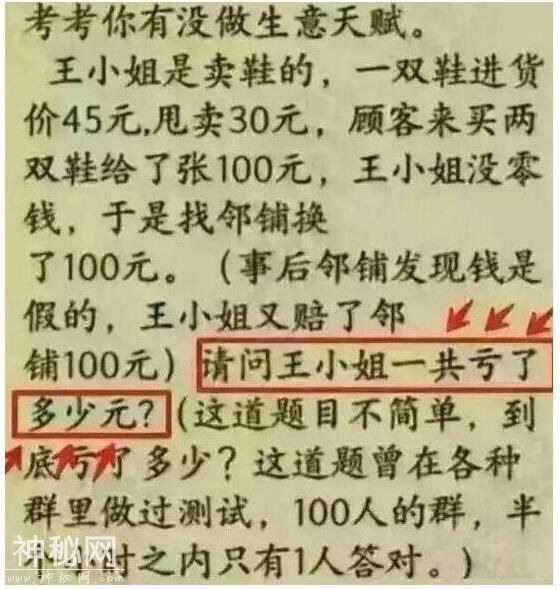 考考你有没做生意天赋。
王小姐是卖鞋的，一双鞋进货
价45元,甩卖30元，顾客来买两
双鞋给了张100元，王小姐没零
钱，于是找邻铺换
了100元。（事后邻铺发现钱是
假的，王小姐又赔了邻
铺100元）请问王小姐一共亏了
多少元？（这道题目不简单，到
底亏了多少？这道题曾在各种
群里做过测试，100人的群，半
小时之内只有1人答对。）
神秘网
www.神秘网.com